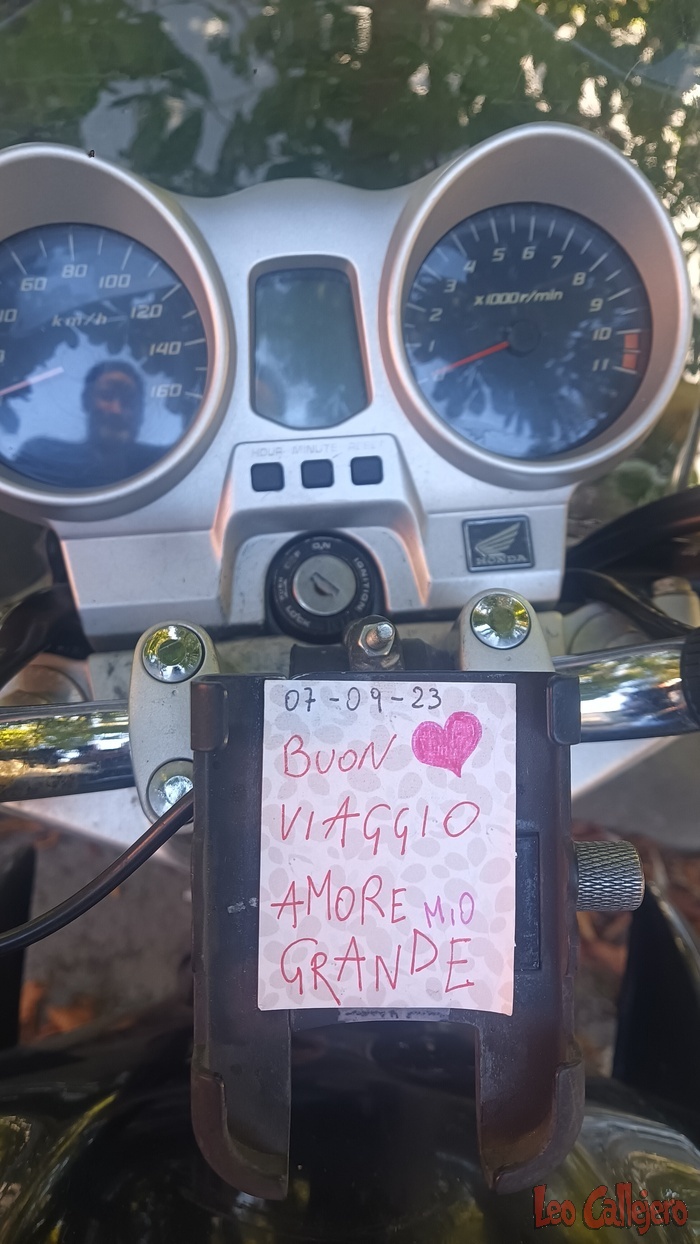 60 80 100
120
km/h
140
160
1 2 3 4 5 6 7 8 9 10 11
x1000r/min
HOUR MINUTE RESET
ON
OFF
IGNITION
HONDA
07-09-23
BUON
VIAGGIO
AMORE MIO
GRANDE
Leo Callejero